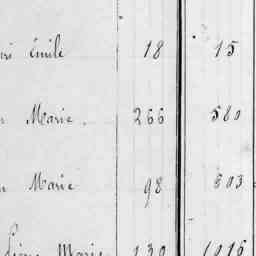 Émile 18 15
Marie . 266 580
Marie 98 803
Marie 139 1016